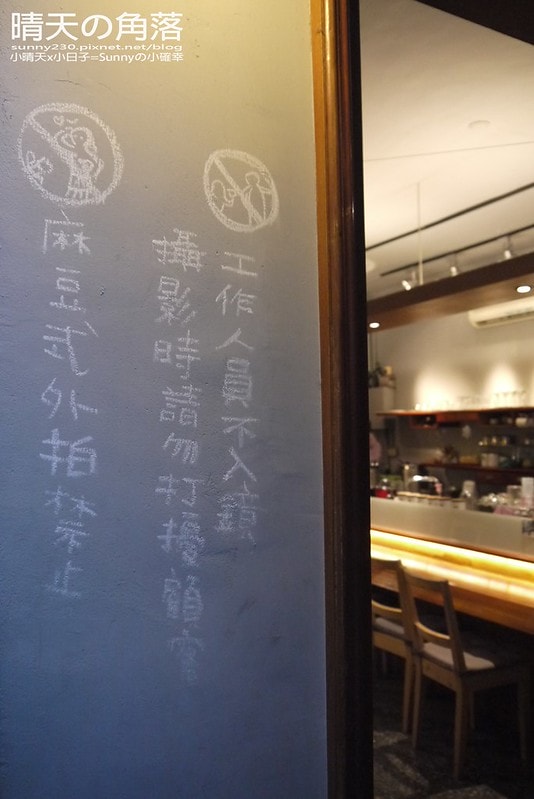 晴天の角落
sunny230.pixnet.net/blog
小晴天x小日子=Sunnyの小確幸
工作人員不入鏡
攝影時請勿打擾顧客
麻豆式外拍禁止